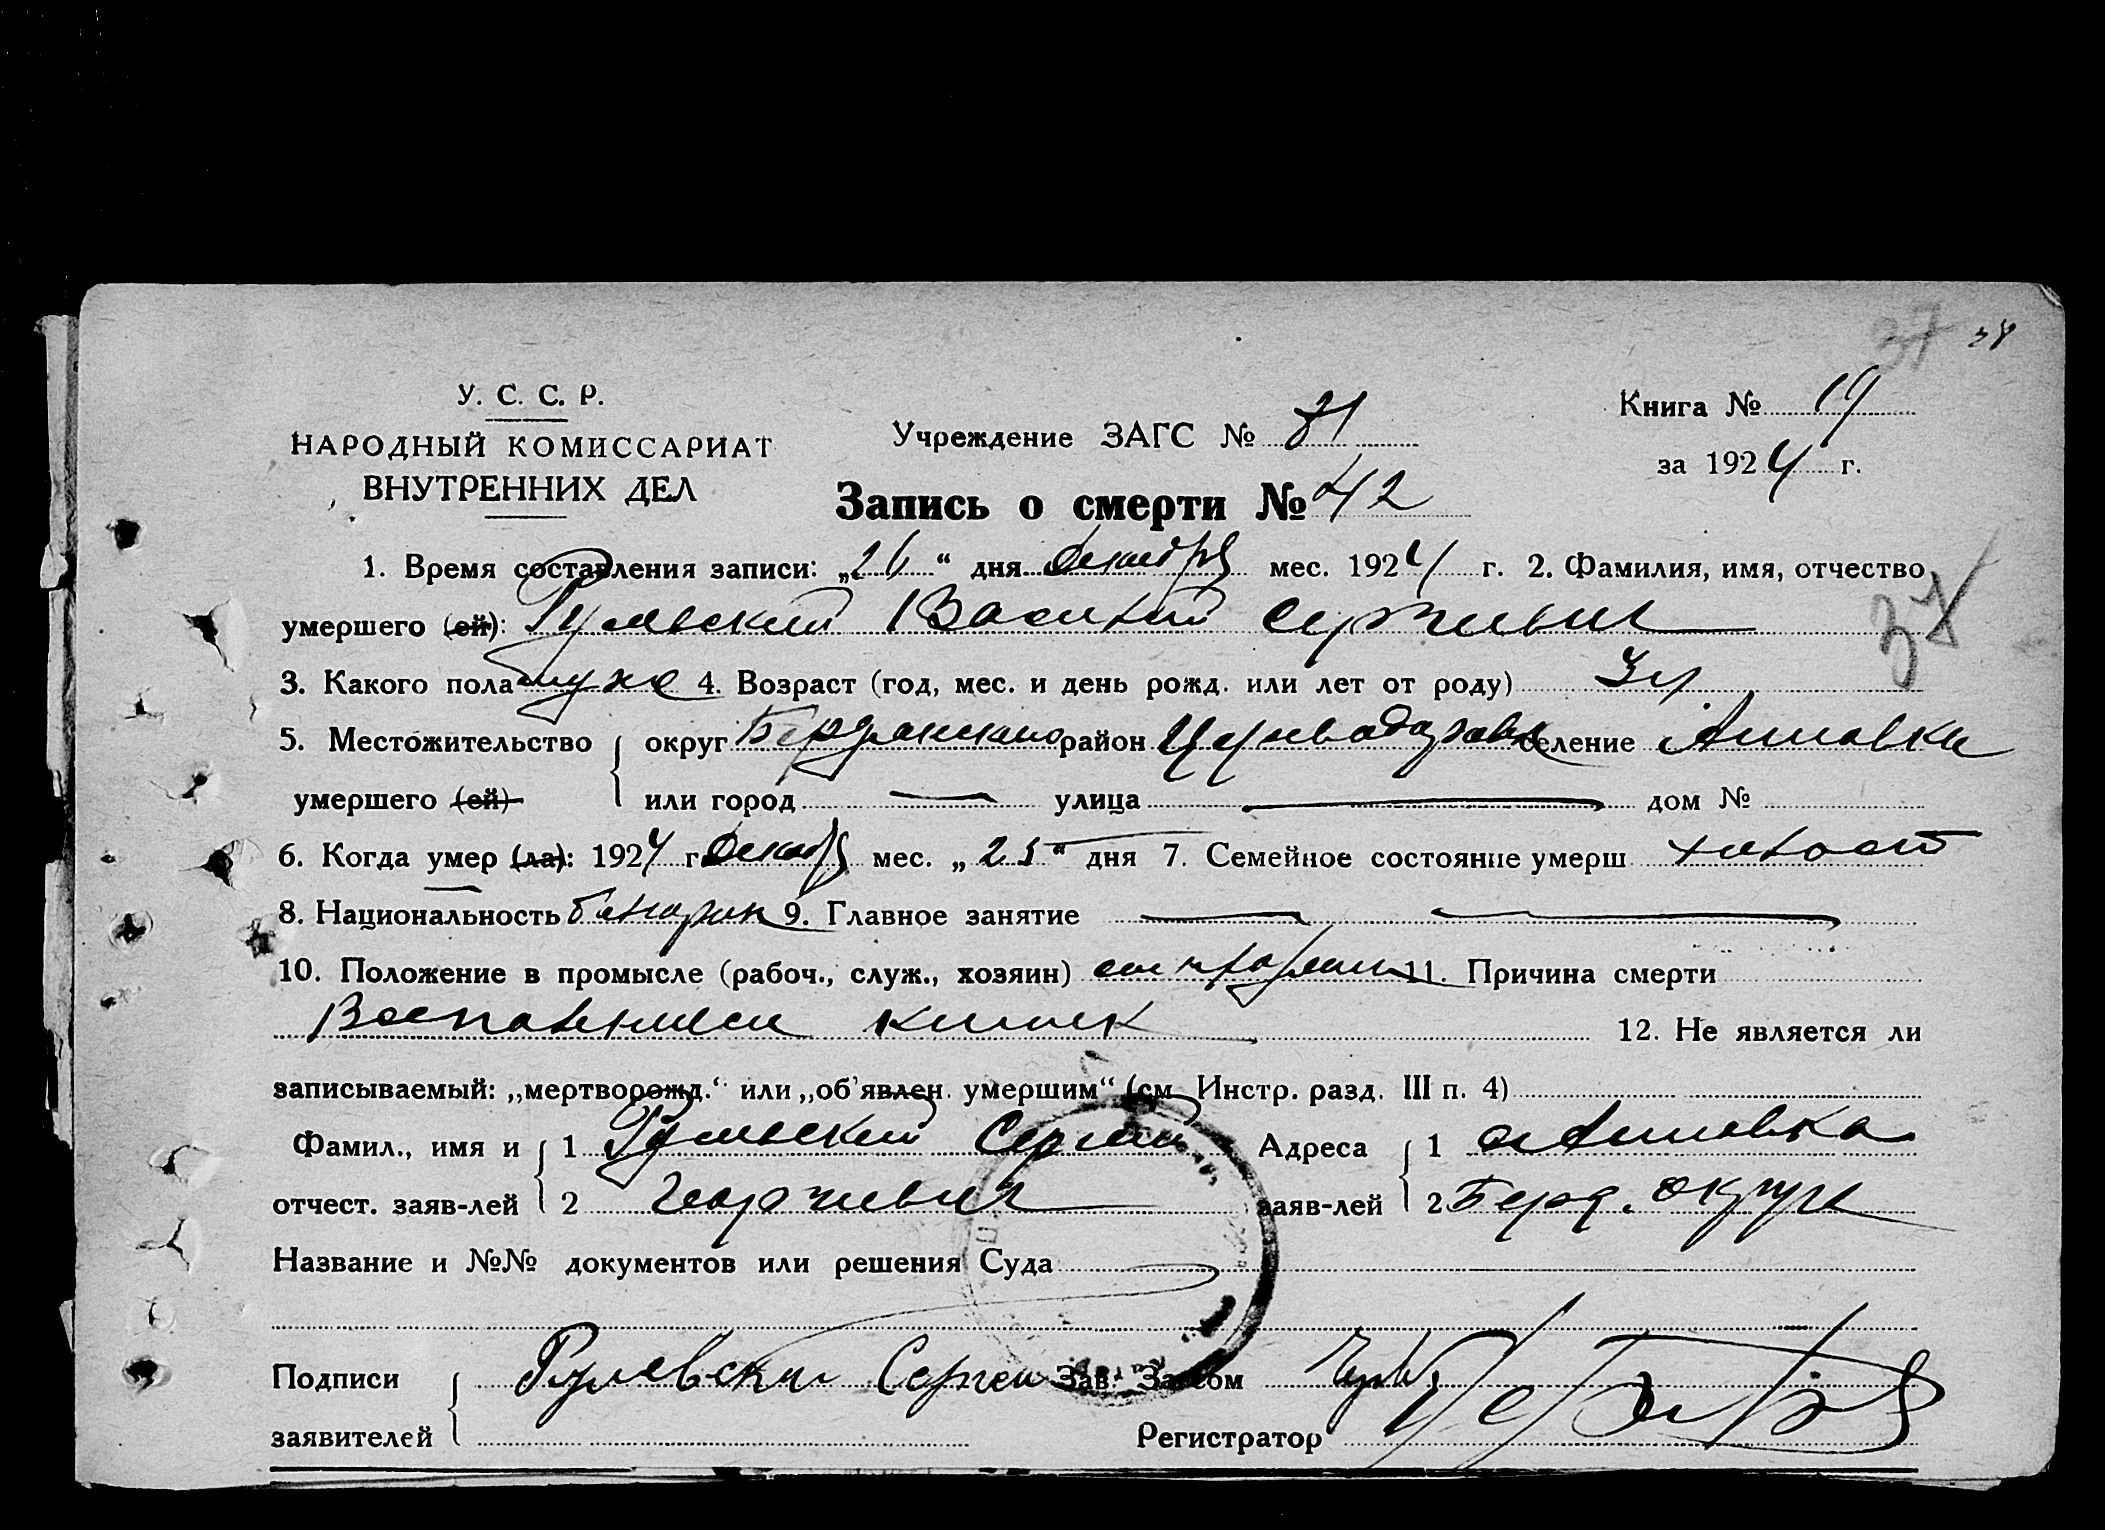 37 38
У. С. С. Р.
НАРОДНЫЙ КОМИССАРИАТ
ВНУТРЕННИХ ДЕЛ
Учреждение ЗАГС №
Книга № 19
за 1924 г.
Запись о смерти № 42
1. Время составления записи: „26“ дня декабря мес. 1924 г. 2. Фамилия, имя, отчество
умершего (ей): Гулевский Василий Сергиевич
37
3. Какого пола муж 4. Возраст (год, мес. и день рожд. или лет от роду) 3 г
5. Местожительство округ Бердянского район селение Анновка
умершего (ей) или город — улица — дом №
6. Когда умер (ла): 1924 г. декабр мес. „25“ дня 7. Семейное состояние умерш холост
8. Национальность болгарин 9. Главное занятие — —
10. Положение в промысле (рабоч., служ., хозяин) 11. Причина смерти
Воспаление кишек 12. Не является ли
записываемый: „мертворожд.“ или „об'явлен. умершим“ (см. Инстр. разд. III п. 4)
Фамил., имя и 1 Гулевский Сергей Адреса 1 с Анновка
отчест. заяв-лей 2 Георгиевич заяв-лей 2 Берд. округа
Название и №№ документов или решения Суда
Подписи Гулевский Сергей Зав. Загсом
заявителей Регистратор